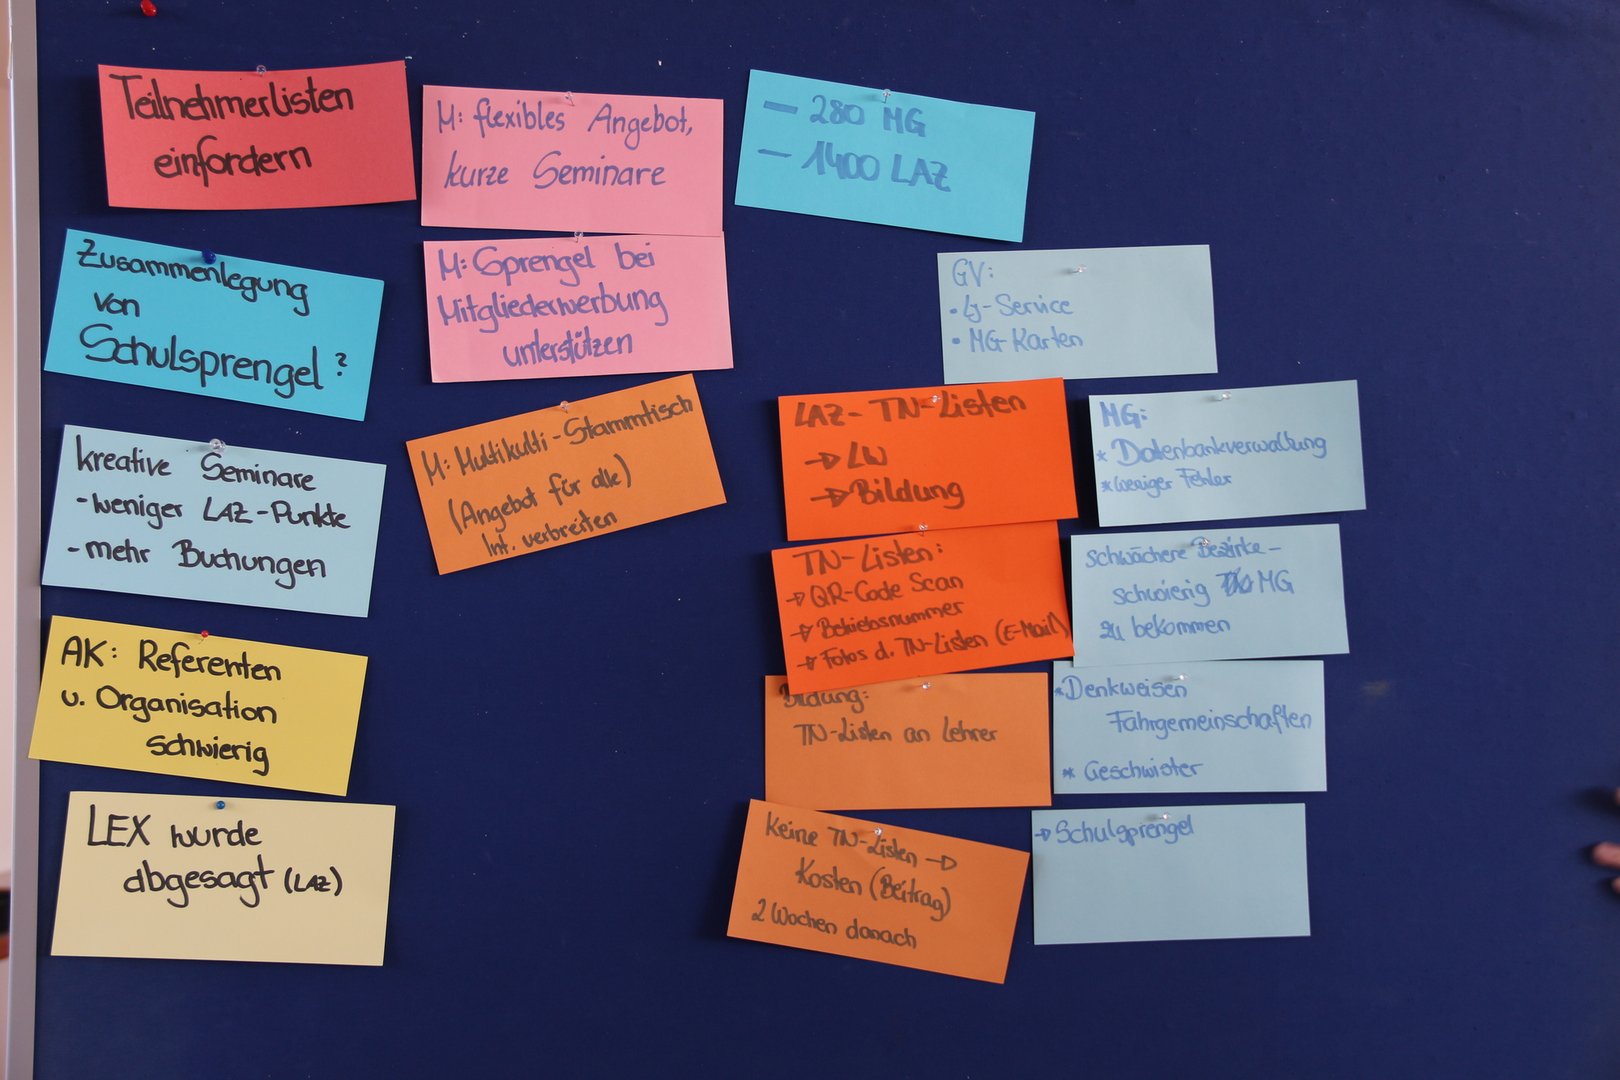 Teilnehmerlisten
einfordern
Zusammenlegung
von
Schulsprengel?
kreative Seminare
- weniger LAZ-Punkte
- mehr Buchungen
AK: Referenten
u. Organisation
schwierig
LEX wurde
abgesagt (LAZ)
M: flexibles Angebot,
kurze Seminare
M: Sprengel bei
Mitgliederwerbung
unterstützen
M: Multikulti-Stammtisch
(Angebot für alle)
Int. verbreiten
— 280 MG
— 1400 LAZ
LAZ-TN-Listen
→ LW
→ Bildung
TN-Listen:
→ QR-Code Scan
→ Betriebsnummer
→ Fotos d. TN-Listen (E-Mail)
Bildung:
TN-Listen an Lehrer
Keine TN-Listen →
Kosten (Beitrag)
2 Wochen danach
GV:
• Lj-Service
• MG-Karten
MG:
* Datenbankverwaltung
* weniger Fehler
schwächere Bezirke –
schwierig MG
zu bekommen
* Denkweisen
Fahrgemeinschaften
* Geschwister
→ Schulsprengel